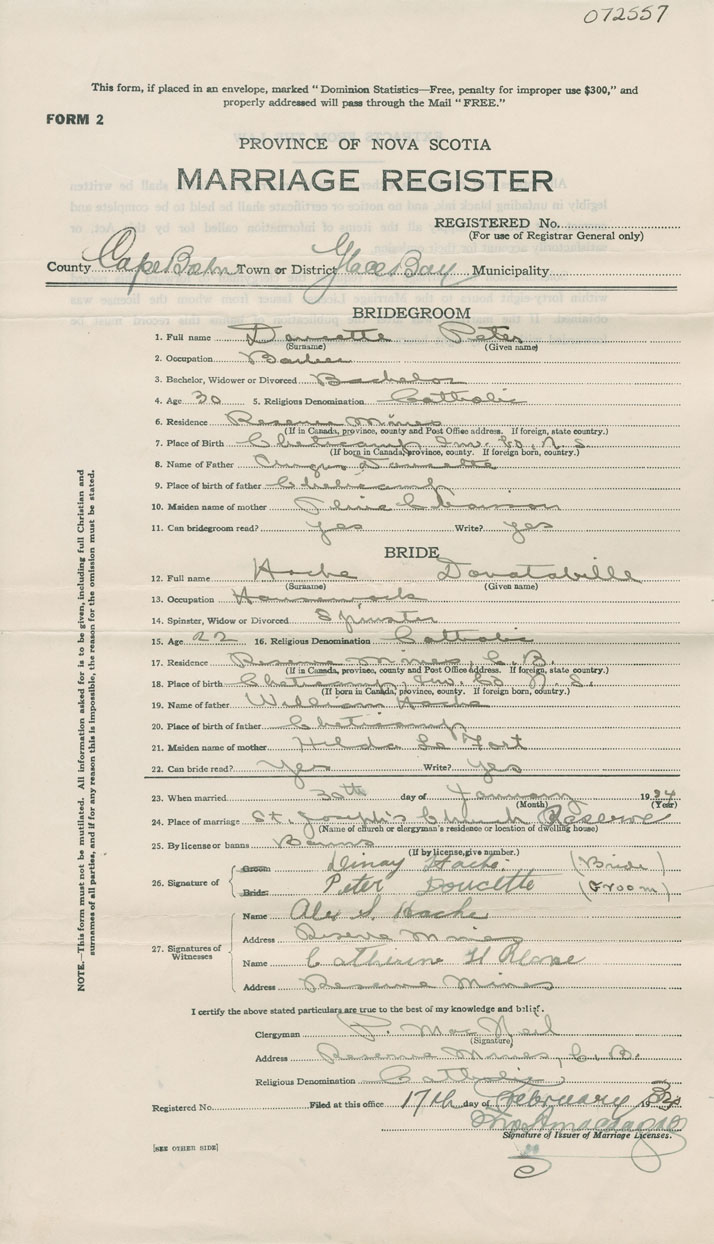 072557
This form, if placed in an envelope, marked "Dominion Statistics—Free, penalty for improper use $300," and
properly addressed will pass through the Mail "FREE."
FORM 2
PROVINCE OF NOVA SCOTIA
MARRIAGE REGISTER
REGISTERED No.
(For use of Registrar General only)
County Cape Breton Town or District Glace Bay Municipality
BRIDEGROOM
1. Full name Doucette Peter
(Surname) (Given name)
2. Occupation Barber
3. Bachelor, Widower or Divorced Bachelor
4. Age 30 5. Religious Denomination Catholic
6. Residence Reserve Mines
(If in Canada, province, county and Post Office address. If foreign, state country.)
7. Place of Birth Cheticamp Inv. Co. N. S.
(If born in Canada, province, county. If foreign born, country.)
8. Name of Father Doucette
9. Place of birth of father Cheticamp
10. Maiden name of mother
11. Can bridegroom read? Yes Write? Yes
BRIDE
12. Full name Hache
(Surname) (Given name)
13. Occupation Housework
14. Spinster, Widow or Divorced Spinster
15. Age 22 16. Religious Denomination Catholic
17. Residence Reserve Mines, C. B.
(If in Canada, province, county and Post Office address. If foreign, state country.)
18. Place of birth Cheticamp, Inv. Co N. S.
(If born in Canada, province, county. If foreign born, country.)
19. Name of father William Hache
20. Place of birth of father Cheticamp
21. Maiden name of mother Hilda Le Fort
22. Can bride read? Yes Write? Yes
23. When married 30th day of January 1934
(Month) (Year)
24. Place of marriage St. Joseph's Church Reserve
(Name of church or clergyman's residence or location of dwelling house)
25. By license or banns Banns
(If by license, give number.)
26. Signature of
Groom Hache (Bride)
Bride Peter Doucette (Groom)
27. Signatures of Witnesses
Name Alex S. Hache
Address Reserve Mines
Name Catherine H
Address Reserve Mines
I certify the above stated particulars are true to the best of my knowledge and belief.
Clergyman P. MacNeil
(Signature)
Address Reserve Mines, C. B.
Religious Denomination Catholic
Registered No. Filed at this office 17th day of February 1934
Signature of Issuer of Marriage Licenses.
[SEE OTHER SIDE]
NOTE.—This form must not be mutilated. All information asked for is to be given, including full Christian and
surnames of all parties, and if for any reason this is impossible, the reason for the omission must be stated.